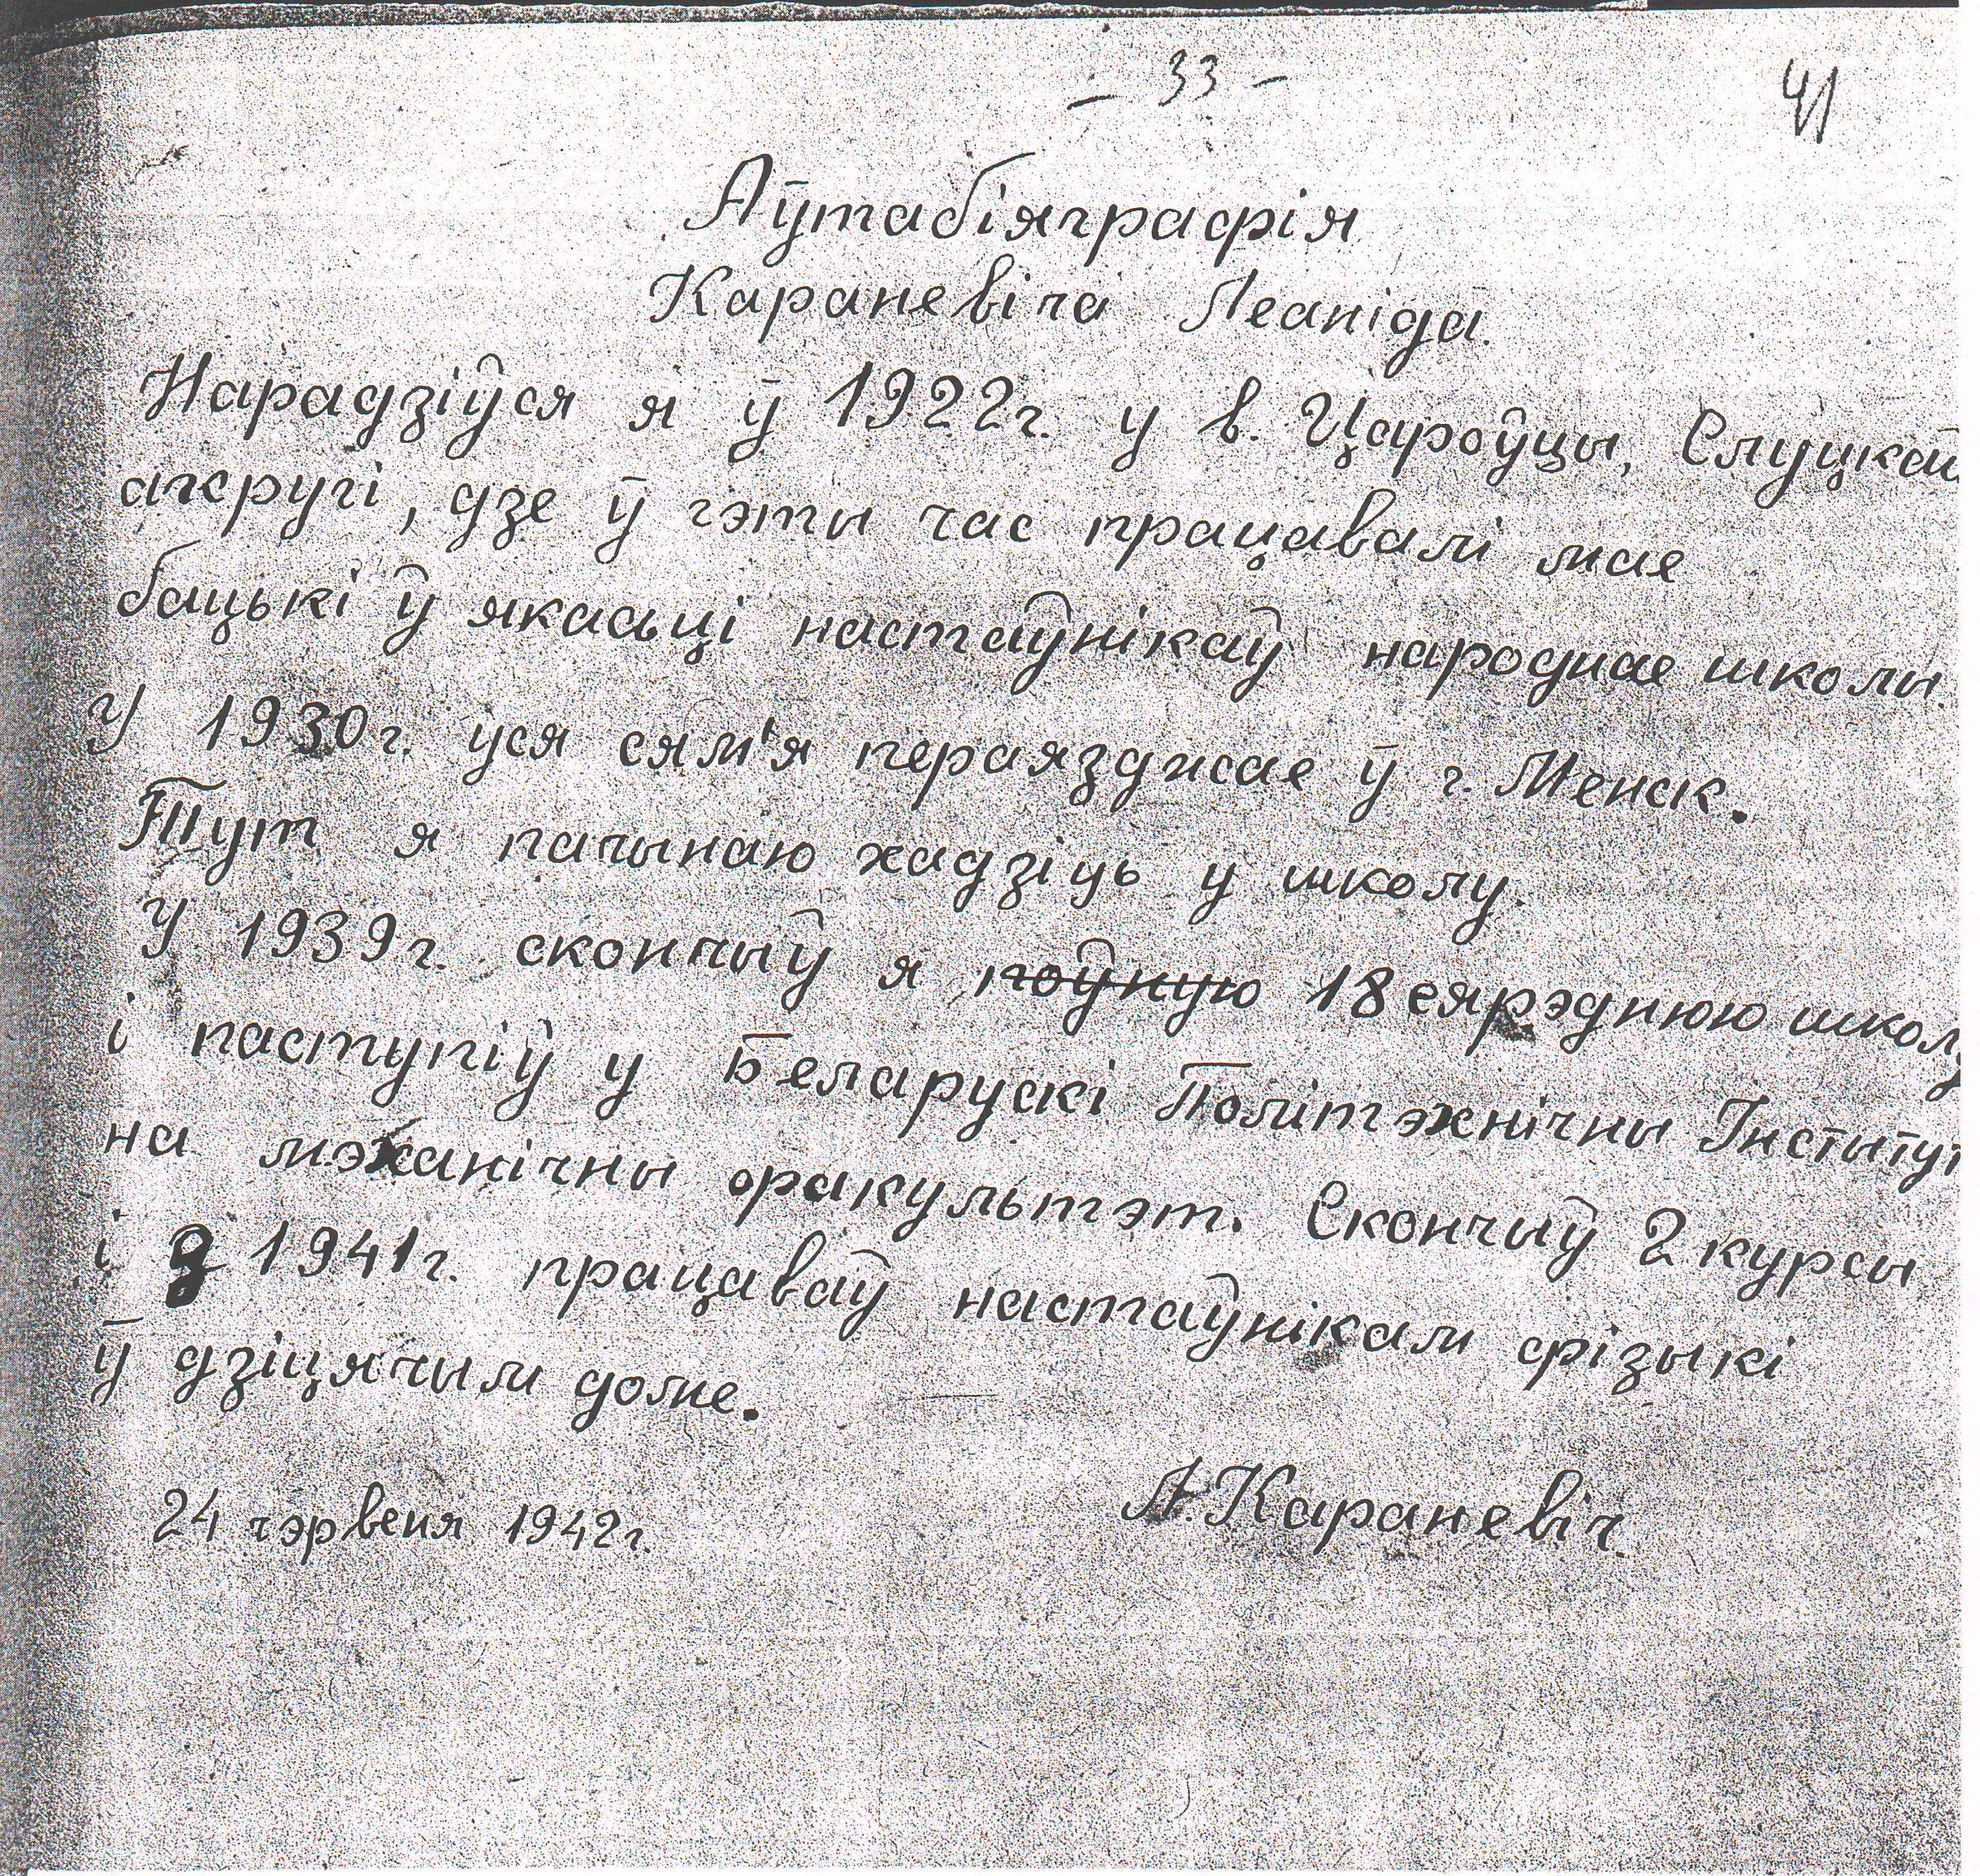 – 33 –
41
Аўтабіяграфія
Караневіча Леаніда.
Нарадзіўся я ў 1922г. у в. Цароўцы, Слуцкай
акругі, дзе ў гэты час працавалі мае
бацькі ў якасьці настаўнікаў народнае школы.
У 1930г. уся сям'я пераязджае ў г. Менск.
Тут я пачынаю хадзіць у школу.
У 1939г. скончыў я поўную 18 сярэднюю школу
і паступіў у Беларускі Політэхнічны Інстытут
на мэханічны факультэт. Скончыў 2 курсы
і з 1941г. працаваў настаўнікам фізыкі
ў дзіцячым доме.
24 чэрвеня 1942г.
Л. Караневіч.